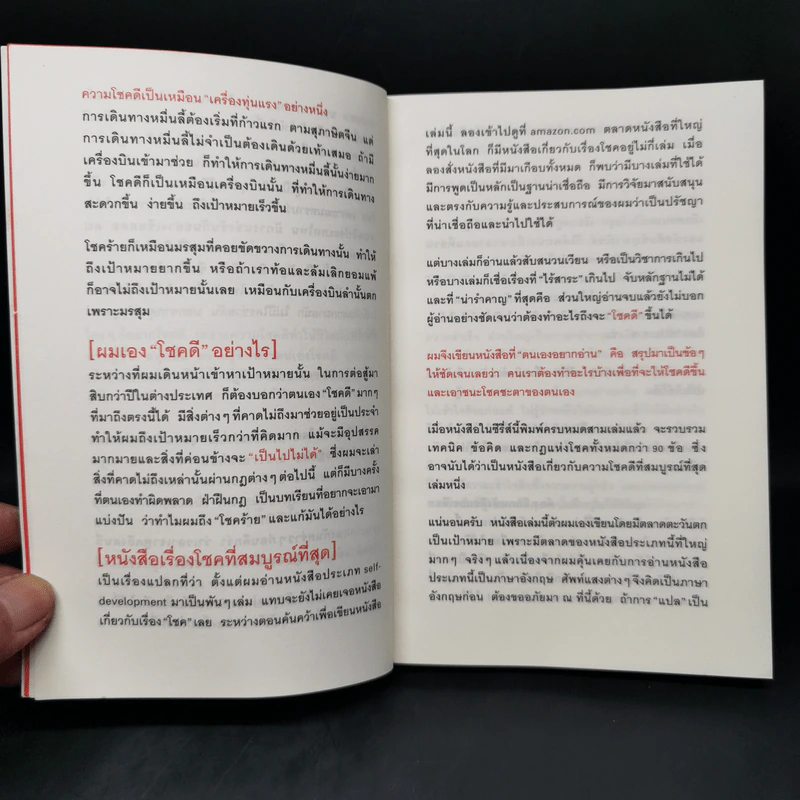 ความโชคดีเป็นเหมือน "เครื่องทุ่นแรง" อย่างหนึ่ง
การเดินทางหมื่นลี้ต้องเริ่มที่ก้าวแรก ตามสุภาษิตจีน แต่
การเดินทางหมื่นลี้ไม่จำเป็นต้องเดินด้วยเท้าเสมอ ถ้ามี
เครื่องบินเข้ามาช่วย ก็ทำให้การเดินทางหมื่นลี้นั้นง่ายมาก
ขึ้น โชคดีก็เป็นเหมือนเครื่องบินนั้น ที่ทำให้การเดินทาง
สะดวกขึ้น ง่ายขึ้น ถึงเป้าหมายเร็วขึ้น
โชคร้ายก็เหมือนมรสุมที่คอยขัดขวางการเดินทางนั้น ทำให้
ถึงเป้าหมายยากขึ้น หรือถ้าเราท้อและล้มเลิกยอมแพ้
ก็อาจไม่ถึงเป้าหมายนั้นเลย เหมือนกับเครื่องบินลำนั้นตก
เพราะมรสุม
[ผมเอง "โชคดี" อย่างไร]
ระหว่างที่ผมเดินหน้าเข้าหาเป้าหมายนั้น ในการต่อสู้มา
สิบกว่าปีในต่างประเทศ ก็ต้องบอกว่าตนเอง "โชคดี" มากๆ
ที่มาถึงตรงนี้ได้ มีสิ่งต่างๆ ที่คาดไม่ถึงมาช่วยอยู่เป็นประจำ
ทำให้ผมถึงเป้าหมายเร็วกว่าที่คิดมาก แม้จะมีอุปสรรค
มากมายและสิ่งที่ค่อนข้างจะ "เป็นไปไม่ได้" ซึ่งผมจะเล่า
สิ่งที่คาดไม่ถึงเหล่านั้นผ่านกฎต่างๆ ต่อไปนี้ แต่ก็มีบางครั้ง
ที่ตนเองทำผิดพลาด ฝ่าฝืนกฎ เป็นบทเรียนที่อยากจะเอามา
แบ่งปัน ว่าทำไมผมถึง "โชคร้าย" และแก้มันได้อย่างไร
[หนังสือเรื่องโชคที่สมบูรณ์ที่สุด]
เป็นเรื่องแปลกที่ว่า ตั้งแต่ผมอ่านหนังสือประเภท self-
development มาเป็นพันๆ เล่ม แทบจะยังไม่เคยเจอหนังสือ
เกี่ยวกับเรื่อง "โชค" เลย ระหว่างตอนค้นคว้าเพื่อเขียนหนังสือ
เล่มนี้ ลองเข้าไปดูที่ amazon.com ตลาดหนังสือที่ใหญ่
ที่สุดในโลก ก็มีหนังสือเกี่ยวกับเรื่องโชคอยู่ไม่กี่เล่ม เมื่อ
ลองสั่งหนังสือที่มีมาเกือบทั้งหมด ก็พบว่ามีบางเล่มที่ใช้ได้
มีการพูดเป็นหลักเป็นฐานน่าเชื่อถือ มีการวิจัยมาสนับสนุน
และตรงกับความรู้และประสบการณ์ของผมว่าเป็นปรัชญา
ที่น่าเชื่อถือและนำไปใช้ได้
แต่บางเล่มก็อ่านแล้วสับสนวนเวียน หรือเป็นวิชาการเกินไป
หรือบางเล่มก็เชื่อเรื่องที่ "ไร้สาระ" เกินไป จับหลักฐานไม่ได้
และที่ "น่ารำคาญ" ที่สุดคือ ส่วนใหญ่อ่านจบแล้วยังไม่บอก
ผู้อ่านอย่างชัดเจนว่าต้องทำอะไรถึงจะ "โชคดี" ขึ้นได้
ผมจึงเขียนหนังสือที่ "ตนเองอยากอ่าน" คือ สรุปมาเป็นข้อๆ
ให้ชัดเจนเลยว่า คนเราต้องทำอะไรบ้างเพื่อที่จะให้โชคดีขึ้น
และเอาชนะโชคชะตาของตนเอง
เมื่อหนังสือในซีรี่ส์นี้พิมพ์ครบหมดสามเล่มแล้ว จะรวบรวม
เทคนิค ข้อคิด และกฎแห่งโชคทั้งหมดกว่า 90 ข้อ ซึ่ง
อาจนับได้ว่าเป็นหนังสือเกี่ยวกับความโชคดีที่สมบูรณ์ที่สุด
เล่มหนึ่ง
แน่นอนครับ หนังสือเล่มนี้ตัวผมเองเขียนโดยมีตลาดตะวันตก
เป็นเป้าหมาย เพราะมีตลาดของหนังสือประเภทนี้ที่ใหญ่
มากๆ จริงๆ แล้วเนื่องจากผมคุ้นเคยกับการอ่านหนังสือ
ประเภทนี้เป็นภาษาอังกฤษ ศัพท์แสงต่างๆ จึงคิดเป็นภาษา
อังกฤษก่อน ต้องขออภัยมา ณ ที่นี้ด้วย ถ้าการ "แปล" เป็น